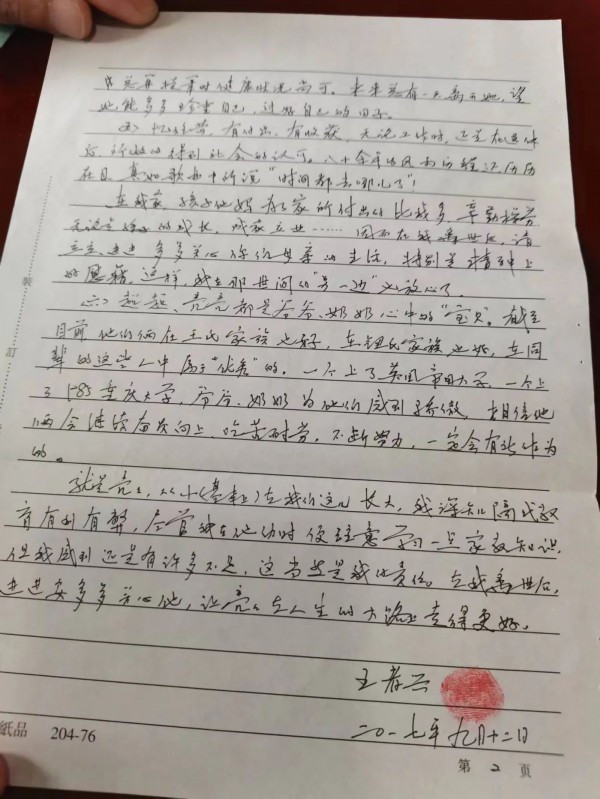 身后等于时健康状况尚可。未来总有一天离开她，望
她能多多珍重自己，过好自己的日子。
有付出，有收获，无论工作时，还是在退休
后，所做的得到社会的认可。八十余年的风雨历程还历历
在目，真如歌曲中所说"时间都去哪儿了"！
在我家，孩子他妈为了家所付出的比我多，辛勤操劳
无论是孩子的成长，成家立业……因而在我离世后，请
立立、进进多多关心你们母亲的生活，特别是精神上
的慰籍，这样，我在那世间的"另一边"也放心了。
(六)超超、亮亮都是爷爷、奶奶心中的"宝贝"。截至
目前他们俩在王氏家族也好，在钮氏家族也好，在同
辈的这些人中属于"优秀"的。一个上了英国帝国大学，一个上
了985重庆大学，爷爷、奶奶为他们感到骄傲，相信他
俩会继续奋发向上、吃苦耐劳，不断努力，一定会有所作为
的。
就是亮亮，从小(基本上)在我们这儿长大，我深知隔代教
育有利有弊，尽管我在他幼时便注意学习一点家教知识，
但我感到还是有许多不足，这当然是我的责任。在我离世后，
进进要多多关心他，让亮亮在人生的大路上走得更好。
王
二〇一七年九月十二日
紙品 204-76
第 2 页
裝
訂